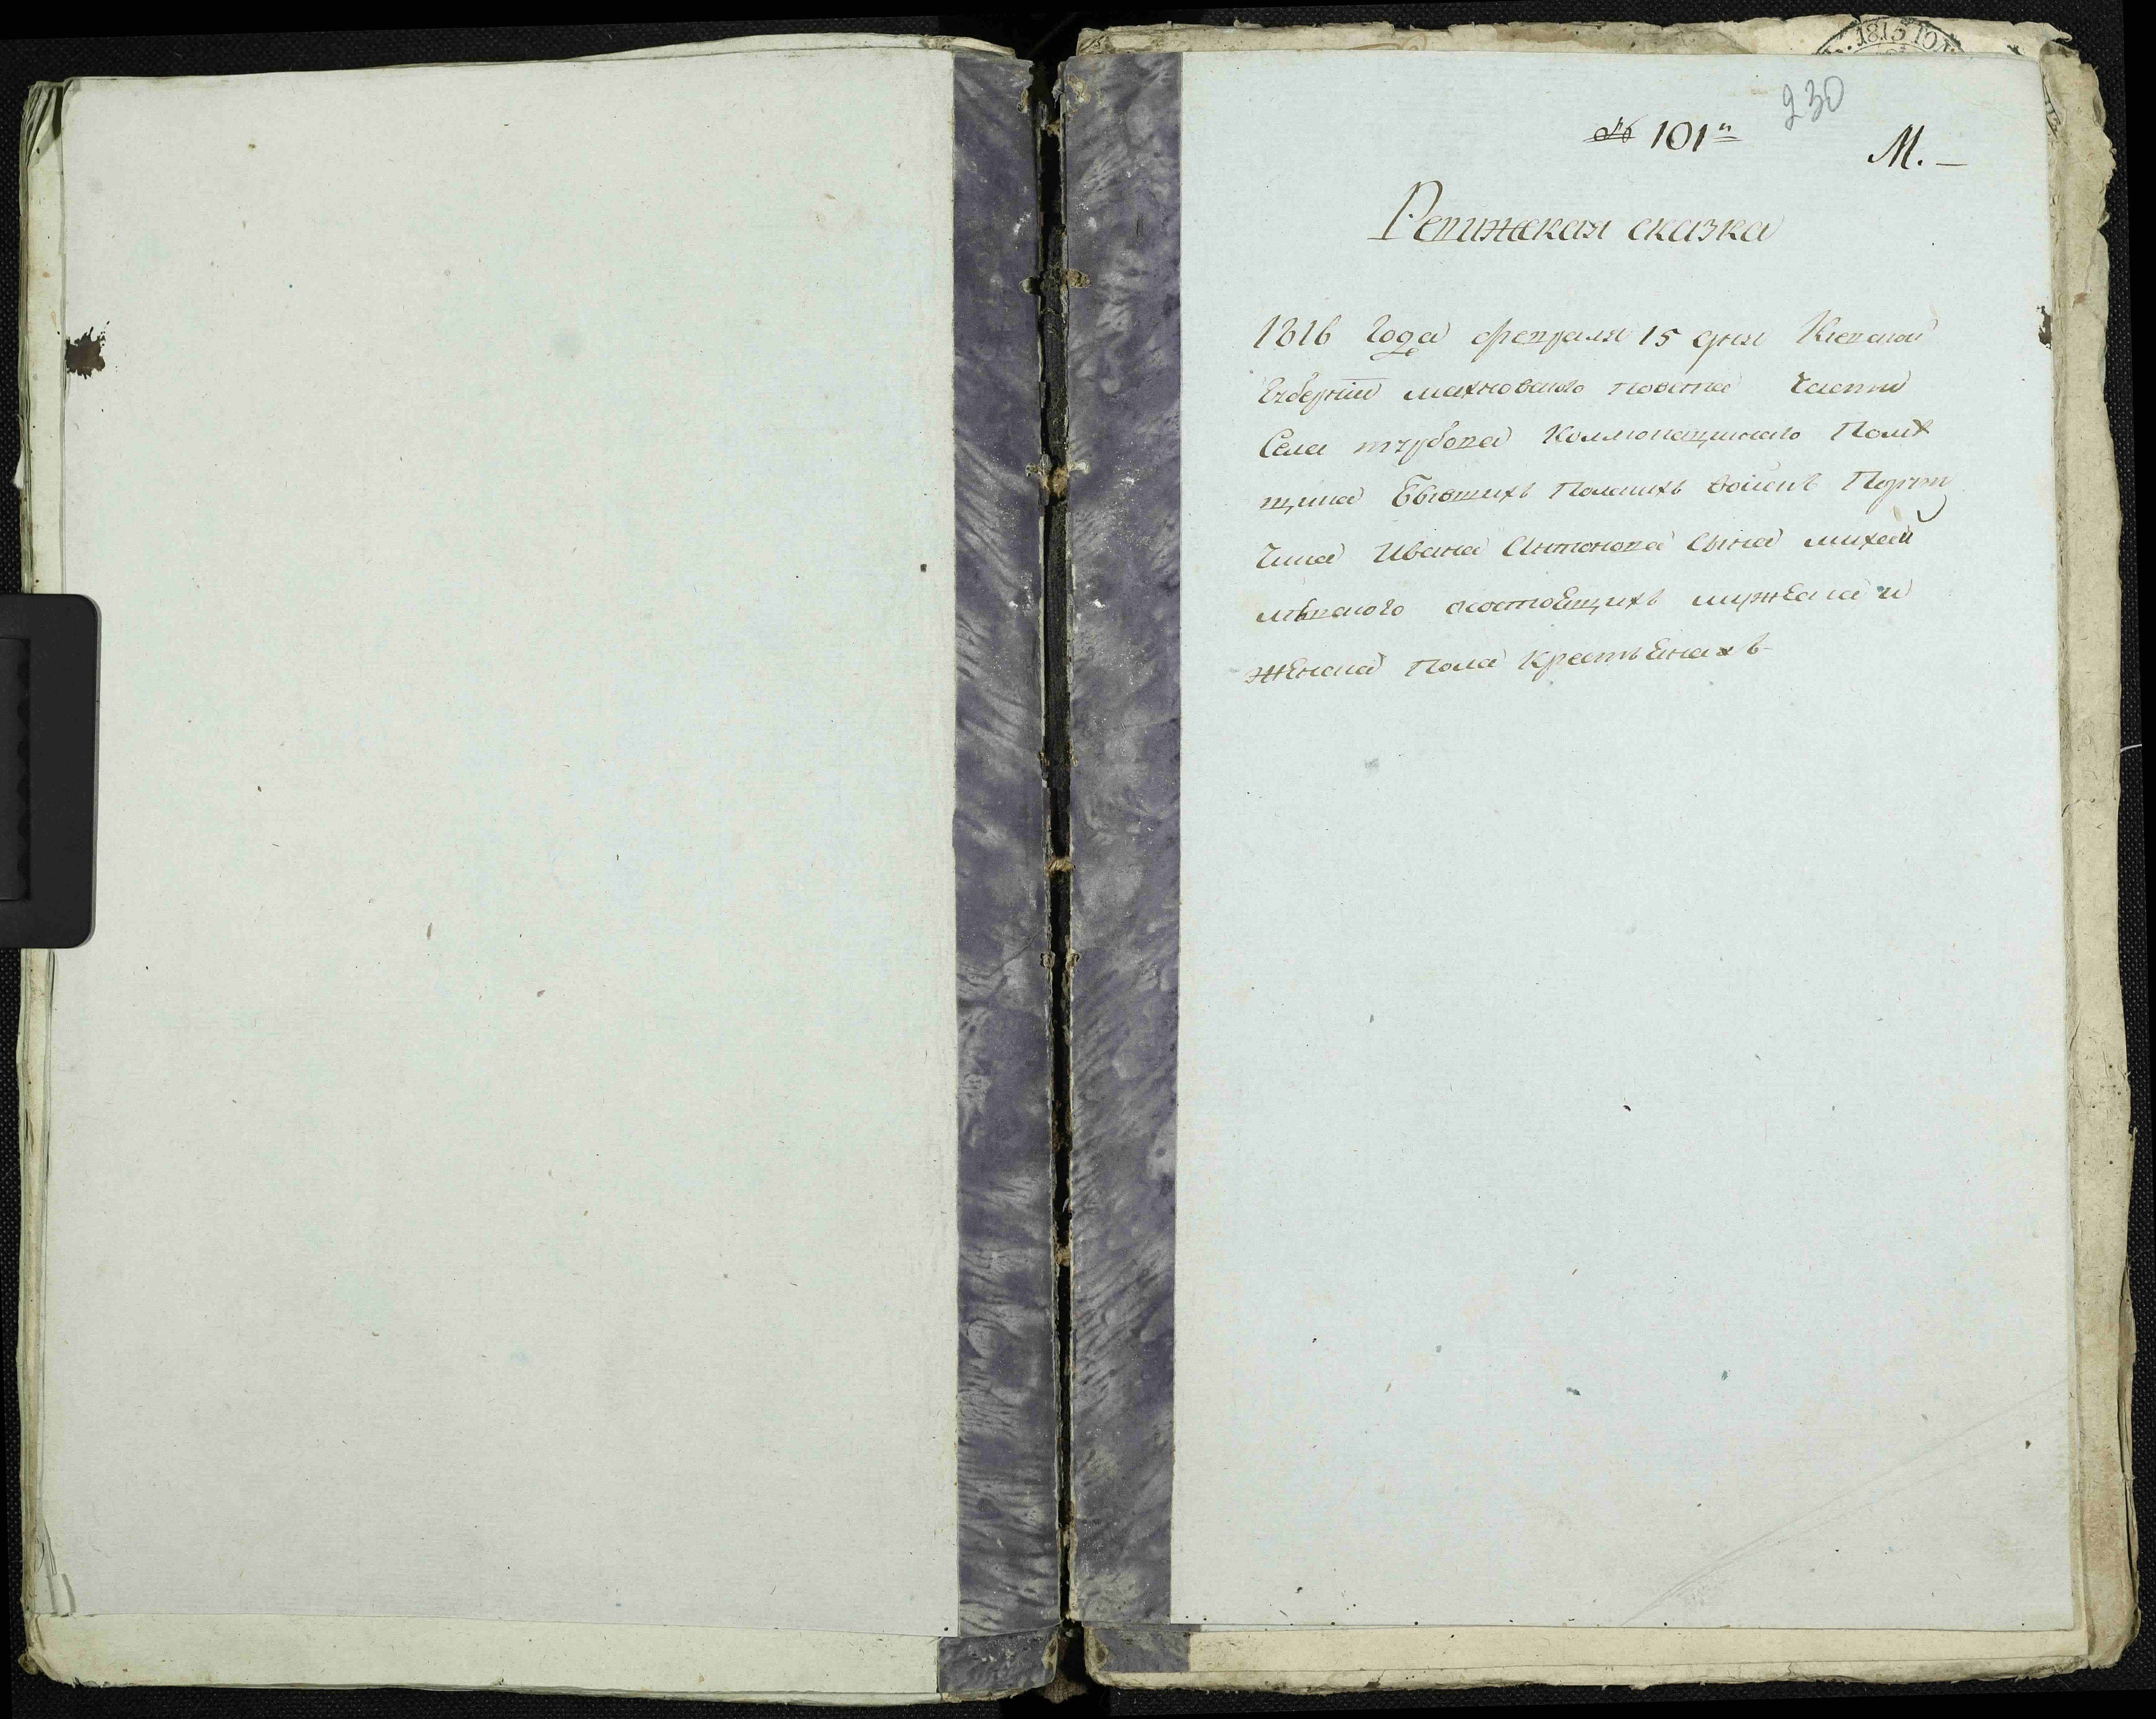 230
№ 101й
М. —
Ревижская сказка
1816 года февраля 15 дня Киевской
Губернии махновского повета Части
Села турбова Коллокацийнаго Помѣ
щика Бывших Полских войскъ Поруч
Чика Ивана Антонова Сына михай
лѣвского осостоЕщихъ мужЕска и
жЕнска Пола КрестьЕнахъ